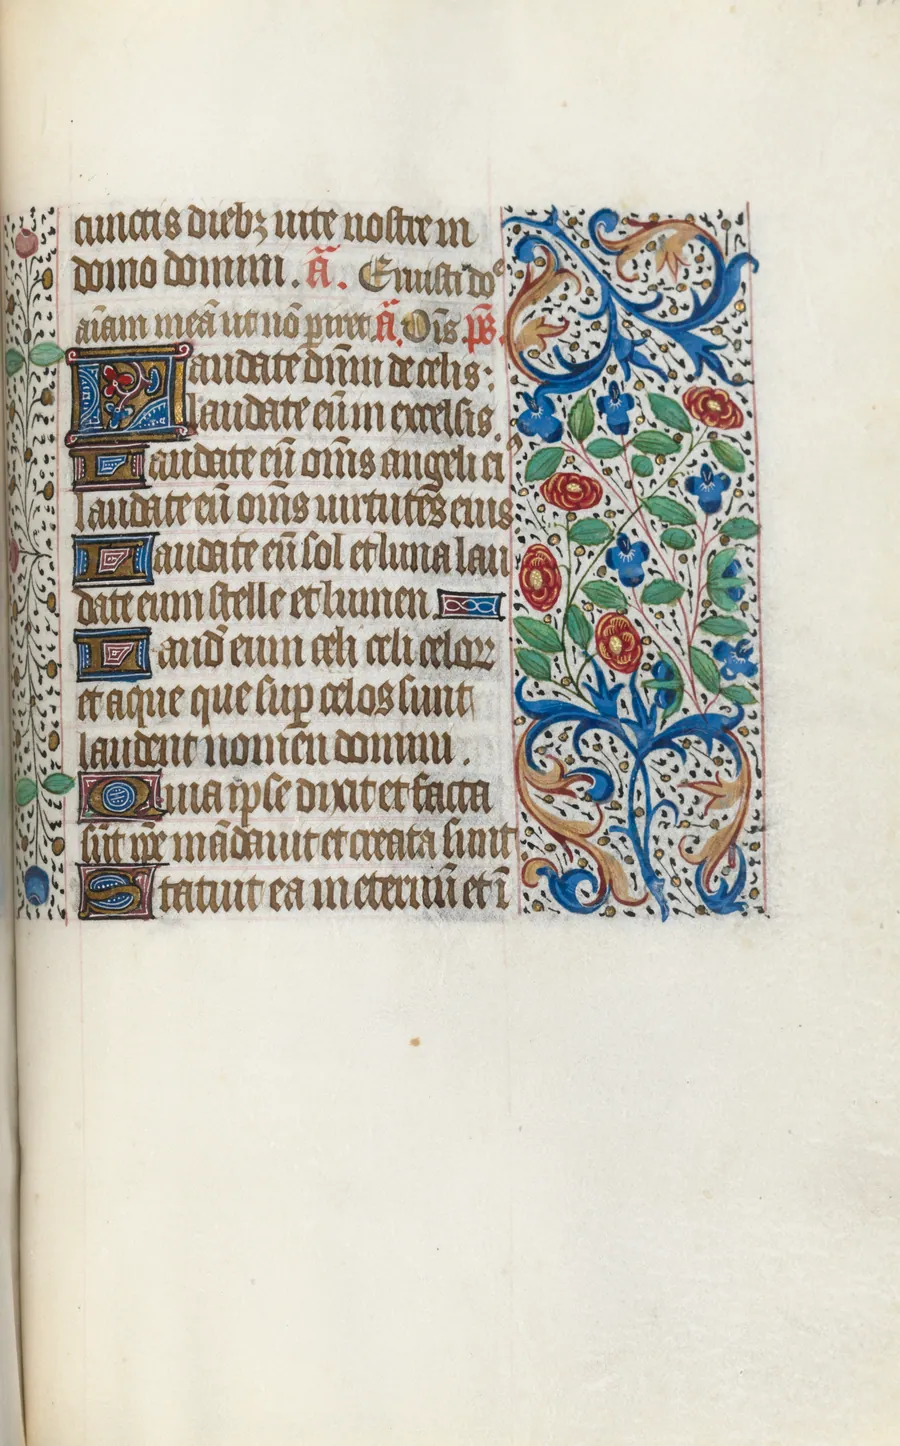 cunctis diebꝫ uite nostre in
domo domini . ā. Eruisti dōe
aīam meā ut nō ꝑiret ā. Oīs pš.
Laudate dn̄m de celis:
laudate eū in excelsis.
Laudate eū om̄s angeli ei9
laudate eū om̄s uirtutes eius
Laudate eū sol et luna lau
date eum stelle et lumen
Laud̄ eum celi celi celoꝝ
et aque que suꝑ celos sunt
laudent nomen domini .
Quia ipse dixit et facta
sūt ip̄e mādauit et creata sunt
Statuit ea in eternū et ī